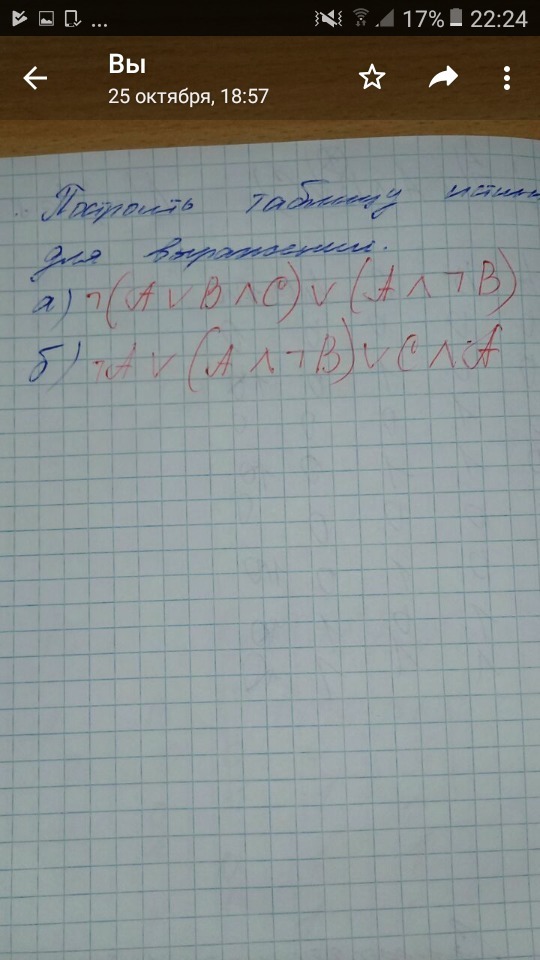 ... 17% 22:24
Вы
25 октября, 18:57
Построить таблицу истин
для выражении.
а) ¬(A ∨ B ∧ C) ∨ (A ∧ ¬B)
б) ¬A ∨ (A ∧ ¬B) ∨ C ∧ A